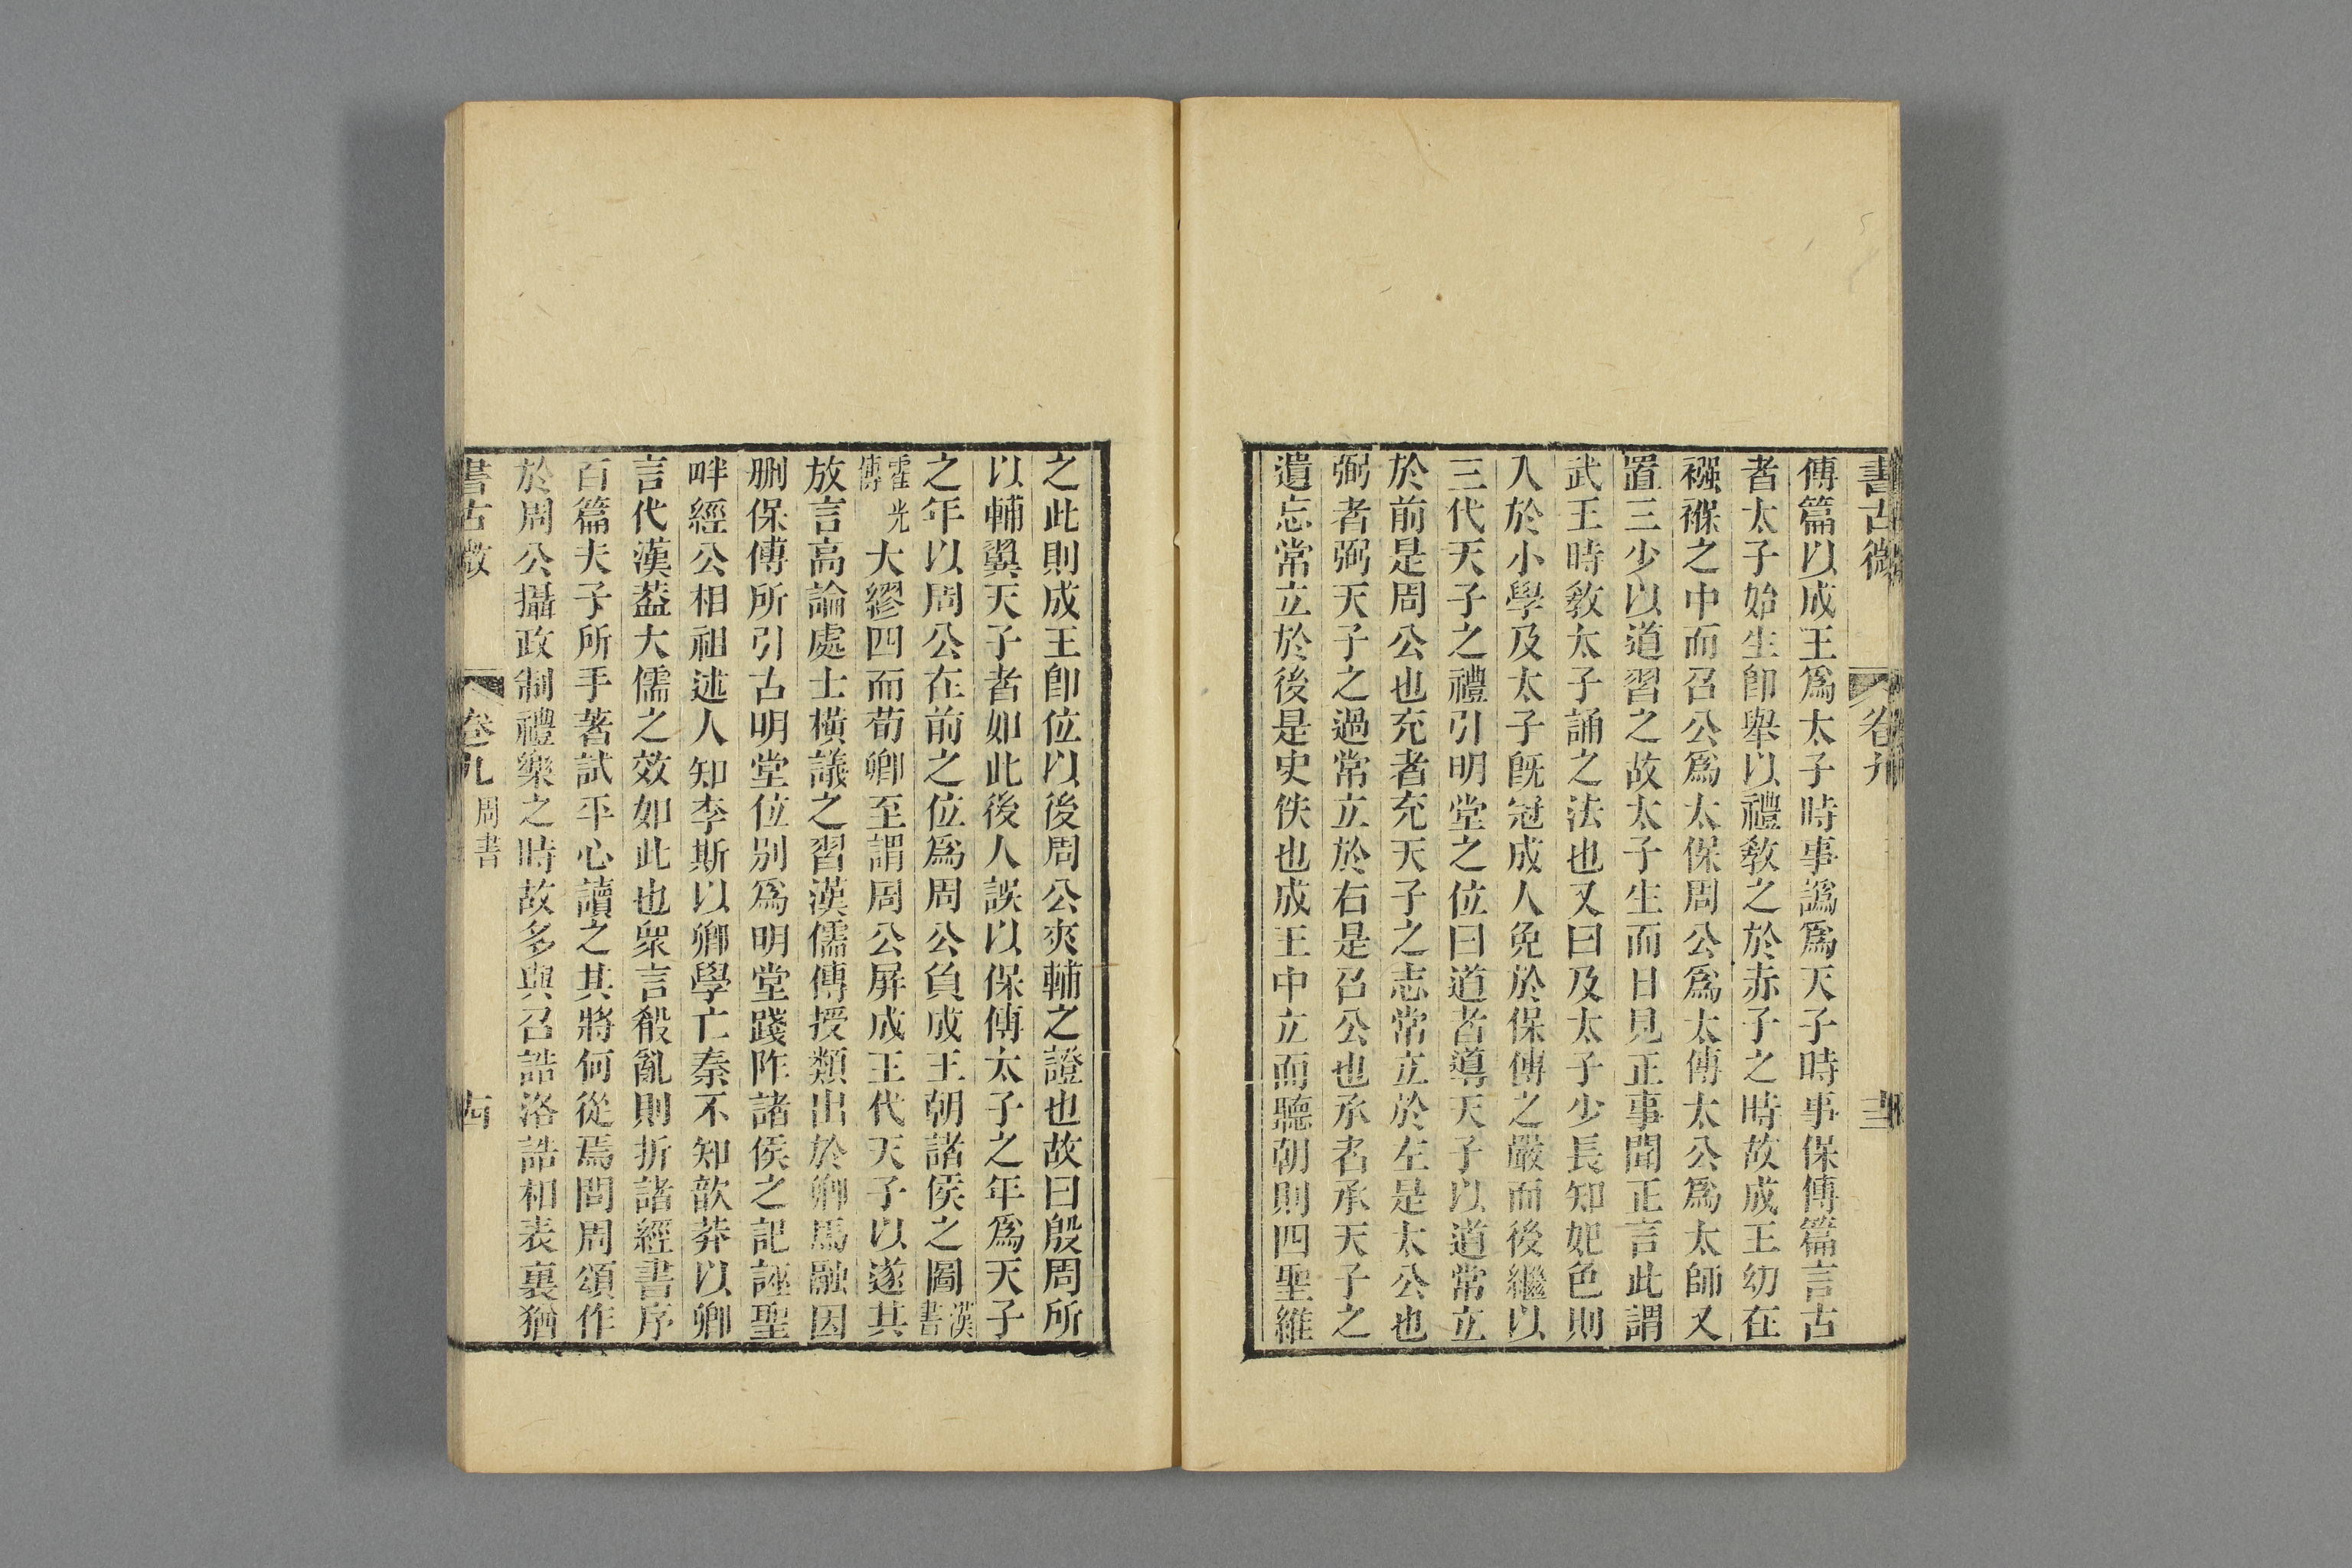 書古微 卷九 十三
傳篇以成王爲太子時事譌爲天子時事保傳篇言古
者太子始生卽舉以禮敎之於赤子之時故成王幼在
襁褓之中而召公爲太保周公爲太傅太公爲太師又
置三少以道習之故太子生而日見正事聞正言此謂
武王時敎太子誦之法也又曰及太子少長知妃色則
入於小學及太子旣冠成人免於保傅之嚴而後繼以
三代天子之禮引明堂之位曰道者導天子以道常立
於前是周公也充者充天子之志常立於左是太公也
弼者弼天子之過常立於右是召公也承者承天子之
遺忘常立於後是史佚也成王中立而聽朝則四聖維
之此則成王卽位以後周公夾輔之證也故曰殷周所
以輔翼天子者如此後人誤以保傅太子之年爲天子
之年以周公在前之位爲周公負成王朝諸侯之圖漢書
霍光傳大繆四而荀卿至謂周公屏成王代天子以遂其
放言高論處士橫議之習漢儒傳授類出於卿馬融因
刪保傅所引古明堂位別爲明堂踐阼諸侯之記誣聖
畔經公相祖述人知李斯以卿學亡秦不知歆莽以卿
言代漢葢大儒之效如此也衆言殽亂則折諸經書序
百篇夫子所手著試平心讀之其將何從焉問周頌作
於周公攝政制禮樂之時故多與召誥洛誥相表裏猶
書古微 卷九周書 十四